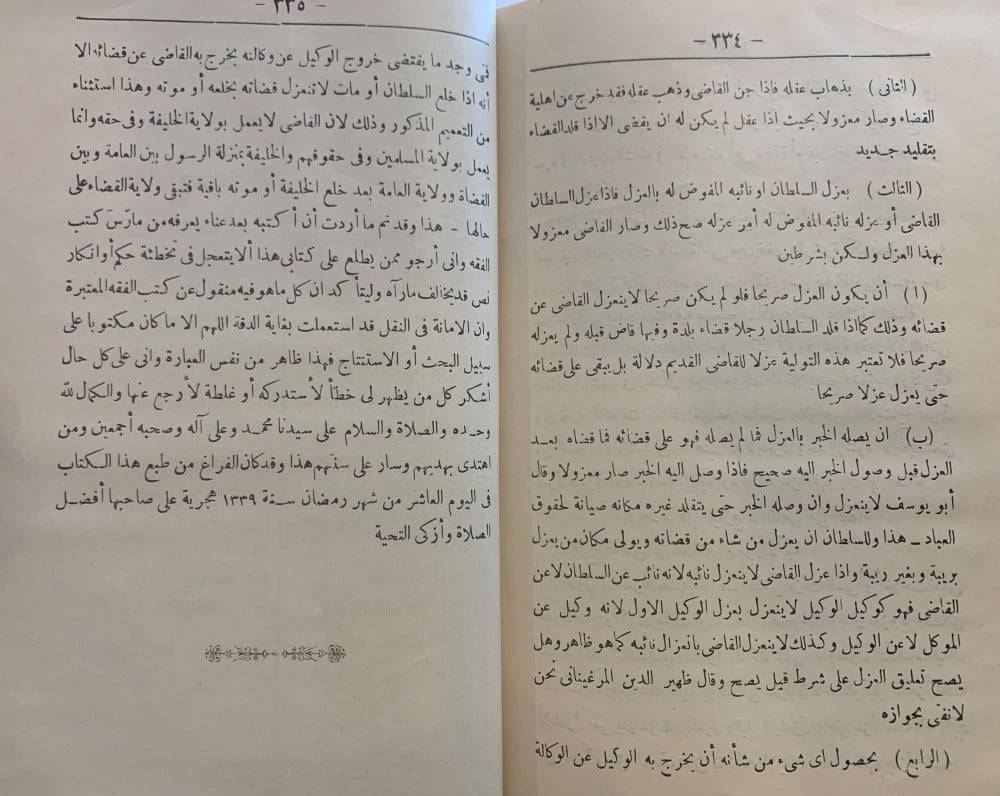 — ٣٣٤ —
( الثانى ) بذهاب عقله فاذا جن القاضى وذهب عقله فقد خرج عن اهلية
القضاء وصار معزولا بحيث اذا عقل لم يكن له ان يقضى الا اذا قلد القضاء
بتقليد جديد
( الثالث ) بعزل السلطان او نائبه المفوض له بالعزل فاذا عزل السلطان
القاضى أو عزله نائبه المفوض له أمر عزله صح ذلك وصار القاضى معزولا
بهذا العزل ولكن بشرطين
( ا ) أن يكون العزل صريحا فلو لم يكن صريحا لا ينعزل القاضى عن
قضائه وذلك كما اذا قلد السلطان رجلا قضاء بلدة وفيها قاض قبله ولم يعزله
صريحا فلا تعتبر هذه التولية عزلا للقاضى القديم دلالة بل يبقى على قضائه
حتى يعزل عزلا صريحا
( ب ) ان يصله الخبر بالعزل فما لم يصله فهو على قضائه فما قضاه بعد
العزل قبل وصول الخبر اليه صحيح فاذا وصل اليه الخبر صار معزولا وقال
أبو يوسف لا ينعزل وان وصله الخبر حتى يتقلد غيره مكانه صيانة لحقوق
العباد ــ هذا وللسلطان ان يعزل من شاء من قضاته ويولى مكان من يعزل
بريبة وبغير ريبة واذا عزل القاضى لا ينعزل نائبه لانه نائب عن السلطان لا عن
القاضى فهو كوكيل الوكيل لا ينعزل بعزل الوكيل الاول لانه وكيل عن
الموكل لا عن الوكيل وكذلك لا ينعزل القاضى بانعزال نائبه كما هو ظاهر وهل
يصح تعليق العزل على شرط قيل يصح وقال ظهير الدين المرغينانى نحن
لا نفتى بجوازه
( الرابع ) بحصول اى شىء من شأنه أن يخرج به الوكيل عن الوكالة
— ٣٣٥ —
فتى وجد ما يقتضى خروج الوكيل عن وكالته يخرج به القاضى عن قضائه الا
أنه اذا خلع السلطان أو مات لا تنعزل قضاته بخلعه أو موته وهذا استثناء
من التعميم المذكور وذلك لان القاضى لا يعمل بولاية الخليفة وفى حقه وانما
يعمل بولاية المسلمين وفى حقوقهم والخليفة بمنزلة الرسول بين العامة وبين
القضاة وولاية العامة بعد خلع الخليفة أو موته باقية فتبقى ولاية القضاء على
حالها ـ هذا وقد تم ما أردت أن أكتبه بعد عناء يعرفه من مارَسَ كتب
الفقه وانى أرجو ممن يطلع على كتابى هذا ألا يتعجل فى تخطئة حكم أو انكار
نص قد يخالف ما رآه وليتأكد ان كل ما هو فيه منقول عن كتب الفقه المعتبرة
وان الامانة فى النقل قد استعملت بغاية الدقة اللهم الا ما كان مكتوبا على
سبيل البحث أو الاستنتاج فهذا ظاهر من نفس العبارة وانى على كل حال
أشكر كل من يظهر لى خطأ لأستدركه أو غلطة لأرجع عنها والكمال لله
وحده والصلاة والسلام على سيدنا محمد وعلى آله وصحبه أجمعين ومن
اهتدى بهديهم وسار على سنتهم هذا وقد كان الفراغ من طبع هذا الكتاب
فى اليوم العاشر من شهر رمضان سنة ١٣٣٩ هجرية على صاحبها أفضل
الصلاة وأزكى التحية